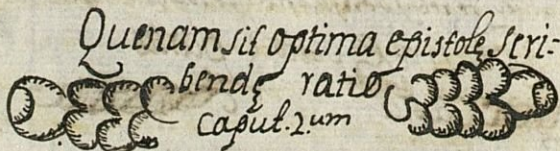 Quenam sit optima epistolę scri-
bendę ratio
Caput. 2.um